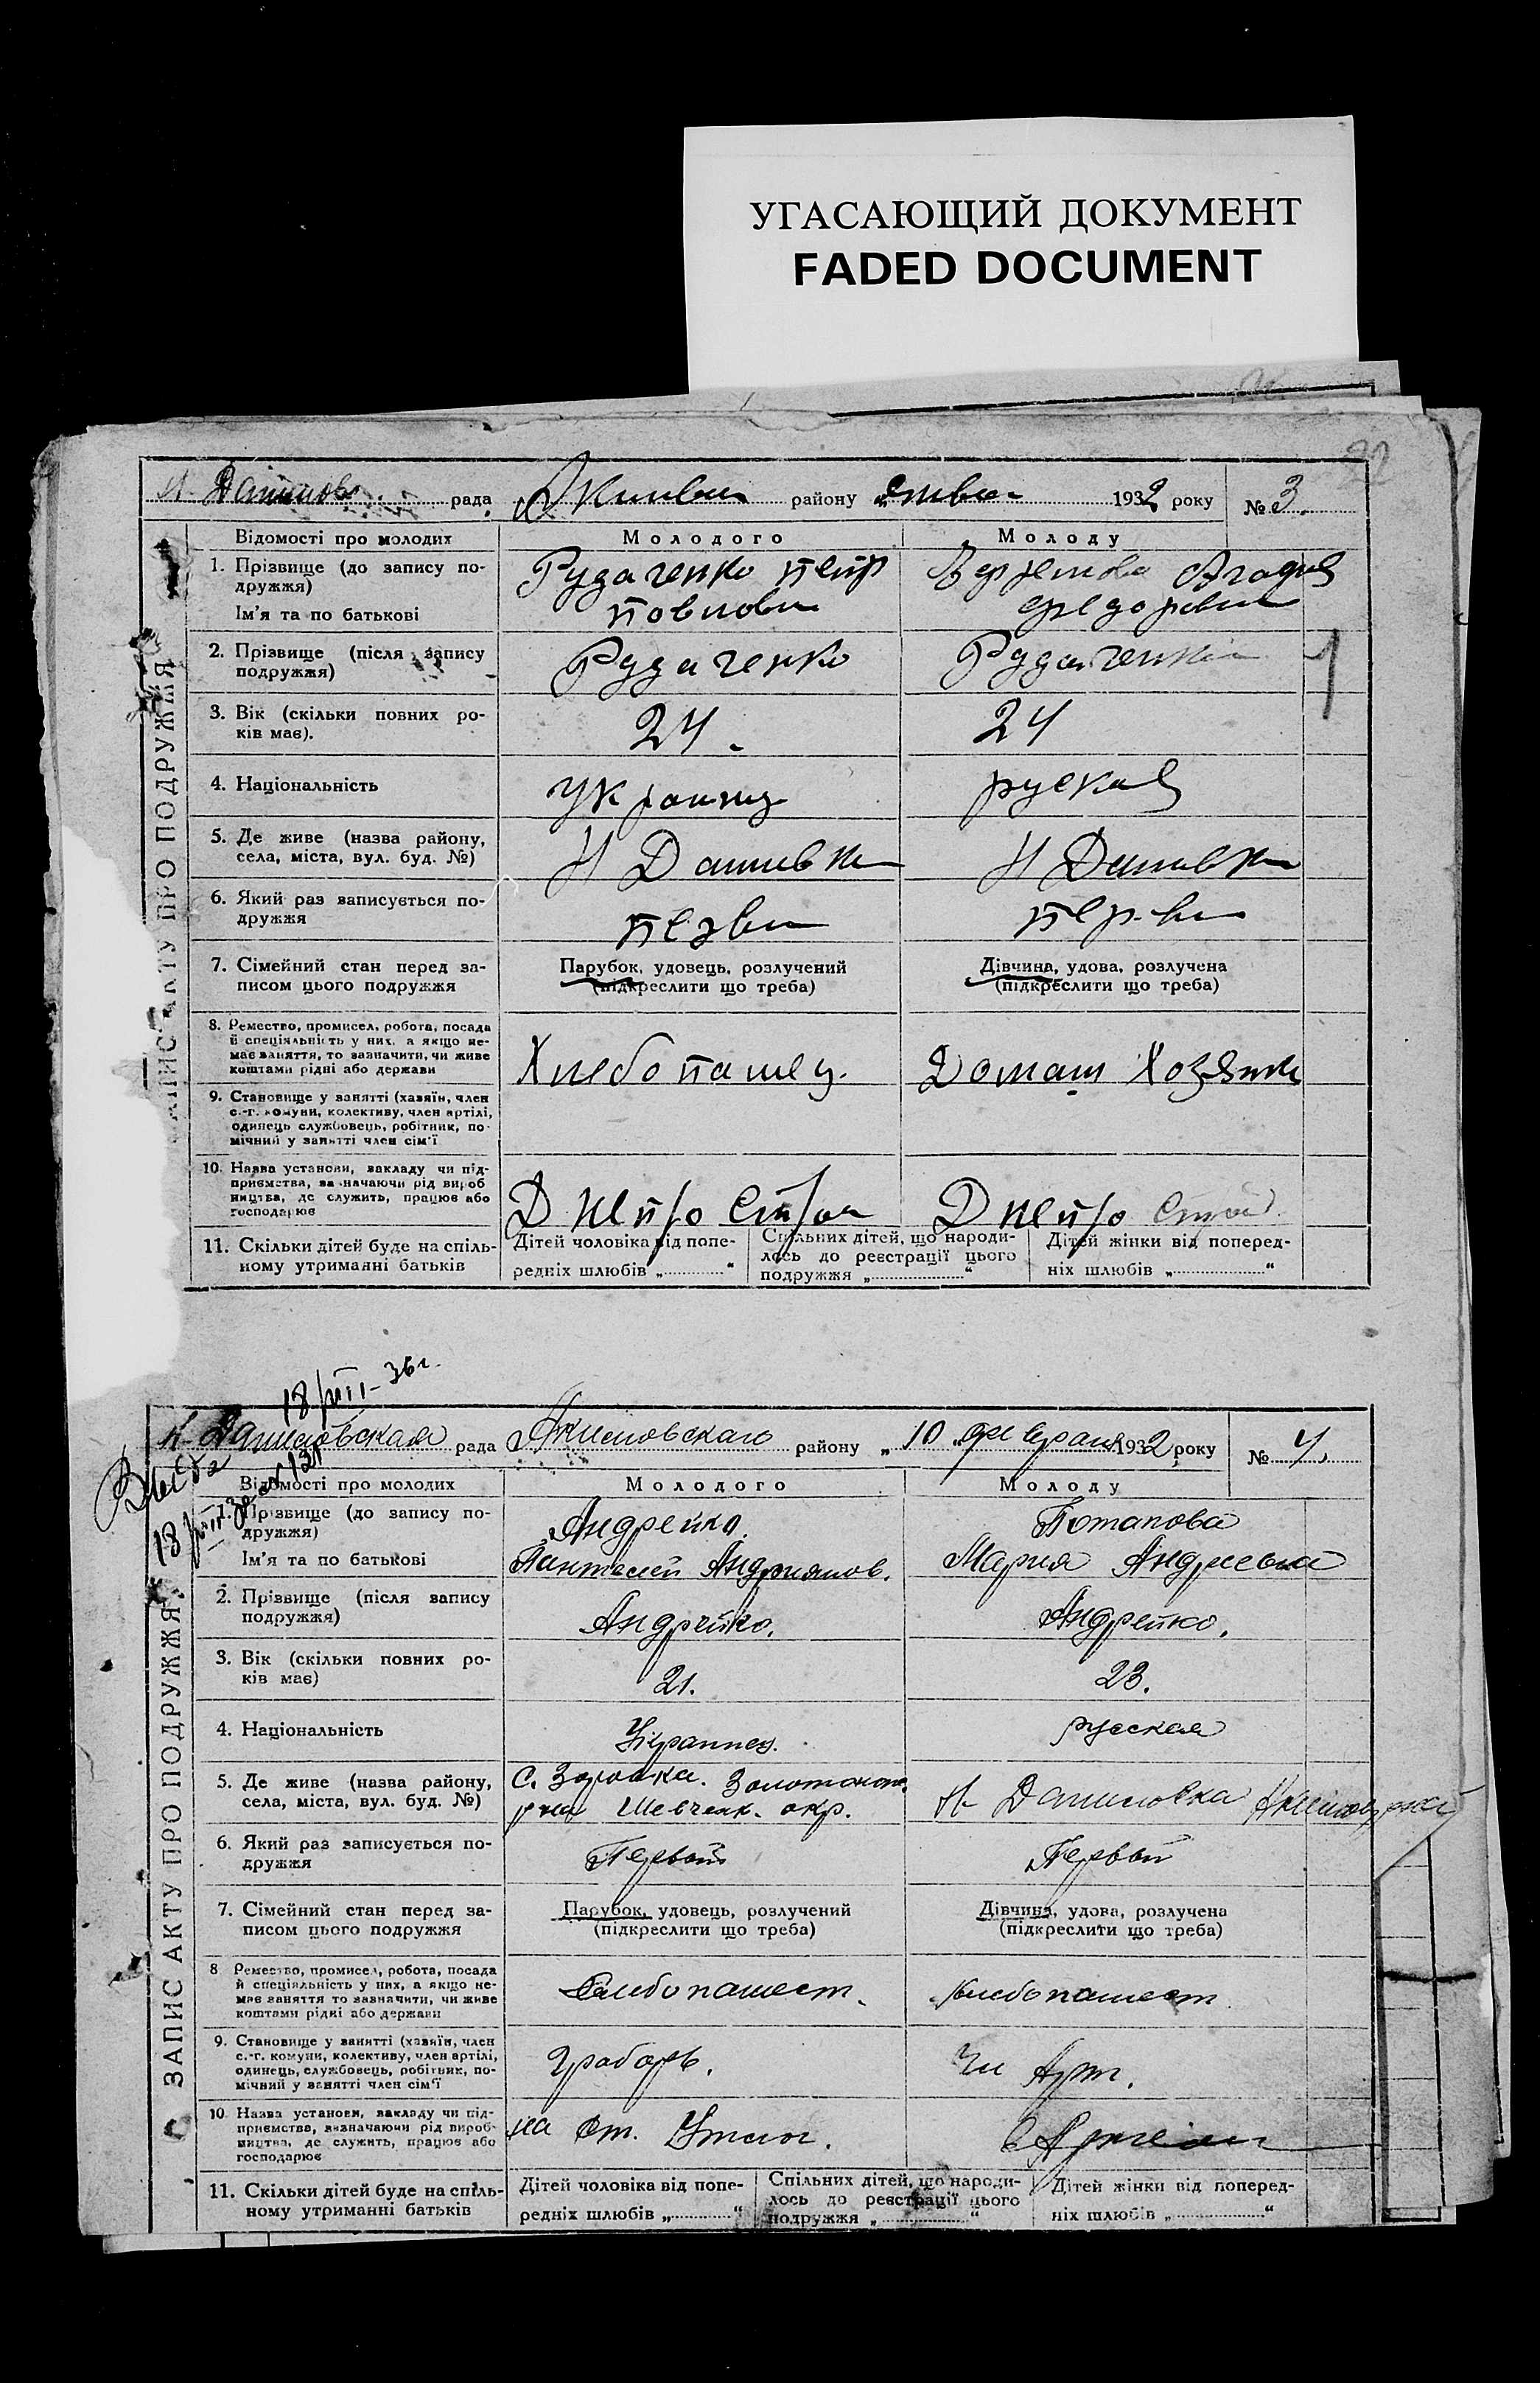 УГАСАЮЩИЙ ДОКУМЕНТ
FADED DOCUMENT
22
рада района 1932 року № 3.
Відомості про молодих Молодого Молоду
1. Прізвище (до запису по-
дружжя)
Рудаченко петр
Ім'я та по батькові
2. Прізвище (після запису
подружжя)
Рудаченко Рудаченко
3. Вік (скільки повних ро-
ків має).
24. 24
4. Національність
руская
5. Де живе (назва району,
села, міста, вул. буд. №)
Н Н
6. Який раз записується по-
дружжя
7. Сімейний стан перед за-
писом цього подружжя
Парубок, удовець, розлучений
(підкреслити що треба)
Дівчина, удова, розлучена
(підкреслити що треба)
8. Ремество, промисел, робота, посада
й спеціяльність у них, а якщо не-
має заняття, то зазначити, чи живе
коштами рідні або держави
Хлебопашец Домаш Хозяйк
9. Становище у занятті (хазяїн, член
с.-г. комуни, колективу, член артілі,
одинець службовець, робітник, по-
мічний у занятті член сім'ї
10. Назва установи, закладу чи під-
приємства, зазначаючи рід вироб
ництва, де служить, працює або
господарює
Днепро Строй Днепро Строй
11. Скільки дітей буде на спіль-
ному утриманні батьків
Дітей чоловіка від попе-
редніх шлюбів „ “
Спільних дітей, що народи-
лось до реєстрації цього
подружжя „ “
Дітей жінки від поперед-
ніх шлюбів „ “
ЗАПИС АКТУ ПРО ПОДРУЖЖЯ
18/VIII-36г.
Н-Даниловская рада Акимовского району „10 февраля 1932 року № 4.
Відомості про молодих Молодого Молоду
1. Прізвище (до запису по-
дружжя)
Андрейко. Потапова
Ім'я та по батькові
Пантелей Андриянов. Мария Андреевна
2. Прізвище (після запису
подружжя)
Андрейко. Андрейко.
3. Вік (скільки повних ро-
ків має)
21. 23.
4. Національність
Украинец. русская
5. Де живе (назва району,
села, міста, вул. буд. №)
с. Золотонош.
р-на Шевченк. окр.
Н-Даниловка
6. Який раз записується по-
дружжя
Первый Первый
7. Сімейний стан перед за-
писом цього подружжя
Парубок, удовець, розлучений
(підкреслити що треба)
Дівчина, удова, розлучена
(підкреслити що треба)
8 Ремество, промисел, робота, посада
й спеціяльність у них, а якщо не-
має заняття то зазначити, чи живе
коштами рідні або держави
Хлебопашест. Хлебопашест
9. Становище у занятті (хазяїн, член
с.-г. комуни, колективу, член артілі,
одинець, службовець, робітник, по-
мічний у занятті член сім'ї
Грабарь. Чл Арт.
10. Назва установи, закладу чи під-
приємства, зазначаючи рід вироб-
ництва, де служить, працює або
господарює
на ст. в
11. Скільки дітей буде на спіль-
ному утриманні батьків
Дітей чоловіка від попе-
редніх шлюбів „ “
Спільних дітей, що народи-
лось до реєстрації цього
подружжя „ “
Дітей жінки від поперед-
ніх шлюбів „ “
ЗАПИС АКТУ ПРО ПОДРУЖЖЯ